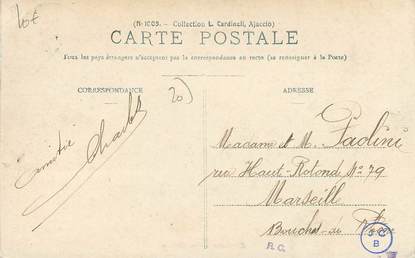 10€
(N° 1009. - Collection L. Cardinali, Ajaccio)
CARTE POSTALE
Tous les pays étrangers n'acceptent pas la correspondance au recto (se renseigner à la Poste)
CORRESPONDANCE
20)
ADRESSE
amitié
Charlot
Madame et M. Paolini
rue Haut-Rotond No 79
Marseill
Bouches-du-Rhône
R.C.
B